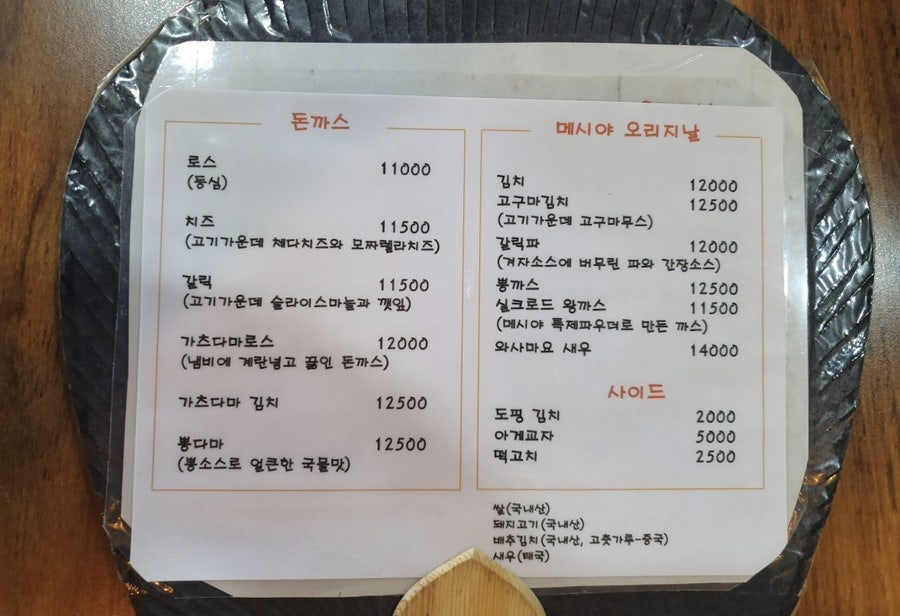 돈까스
로스 11000
(등심)
치즈 11500
(고기가운데 체다치즈와 모짜렐라치즈)
갈릭 11500
(고기가운데 슬라이스마늘과 깻잎)
가츠다마로스 12000
(냄비에 계란넣고 끓인 돈까스)
가츠다마 김치 12500
뽕다마 12500
(뽕소스로 얼큰한 국물맛)
메시야 오리지날
김치 12000
고구마김치 12500
(고기가운데 고구마무스)
갈릭파 12000
(겨자소스에 버무린 파와 간장소스)
뽕까스 12500
실크로드 왕까스 11500
(메시야 특제파우더로 만든 까스)
와사마요 새우 14000
사이드
도핑 김치 2000
아게교자 5000
떡고치 2500
쌀(국내산)
돼지고기(국내산)
배추김치(국내산, 고춧가루-중국)
새우(태국)